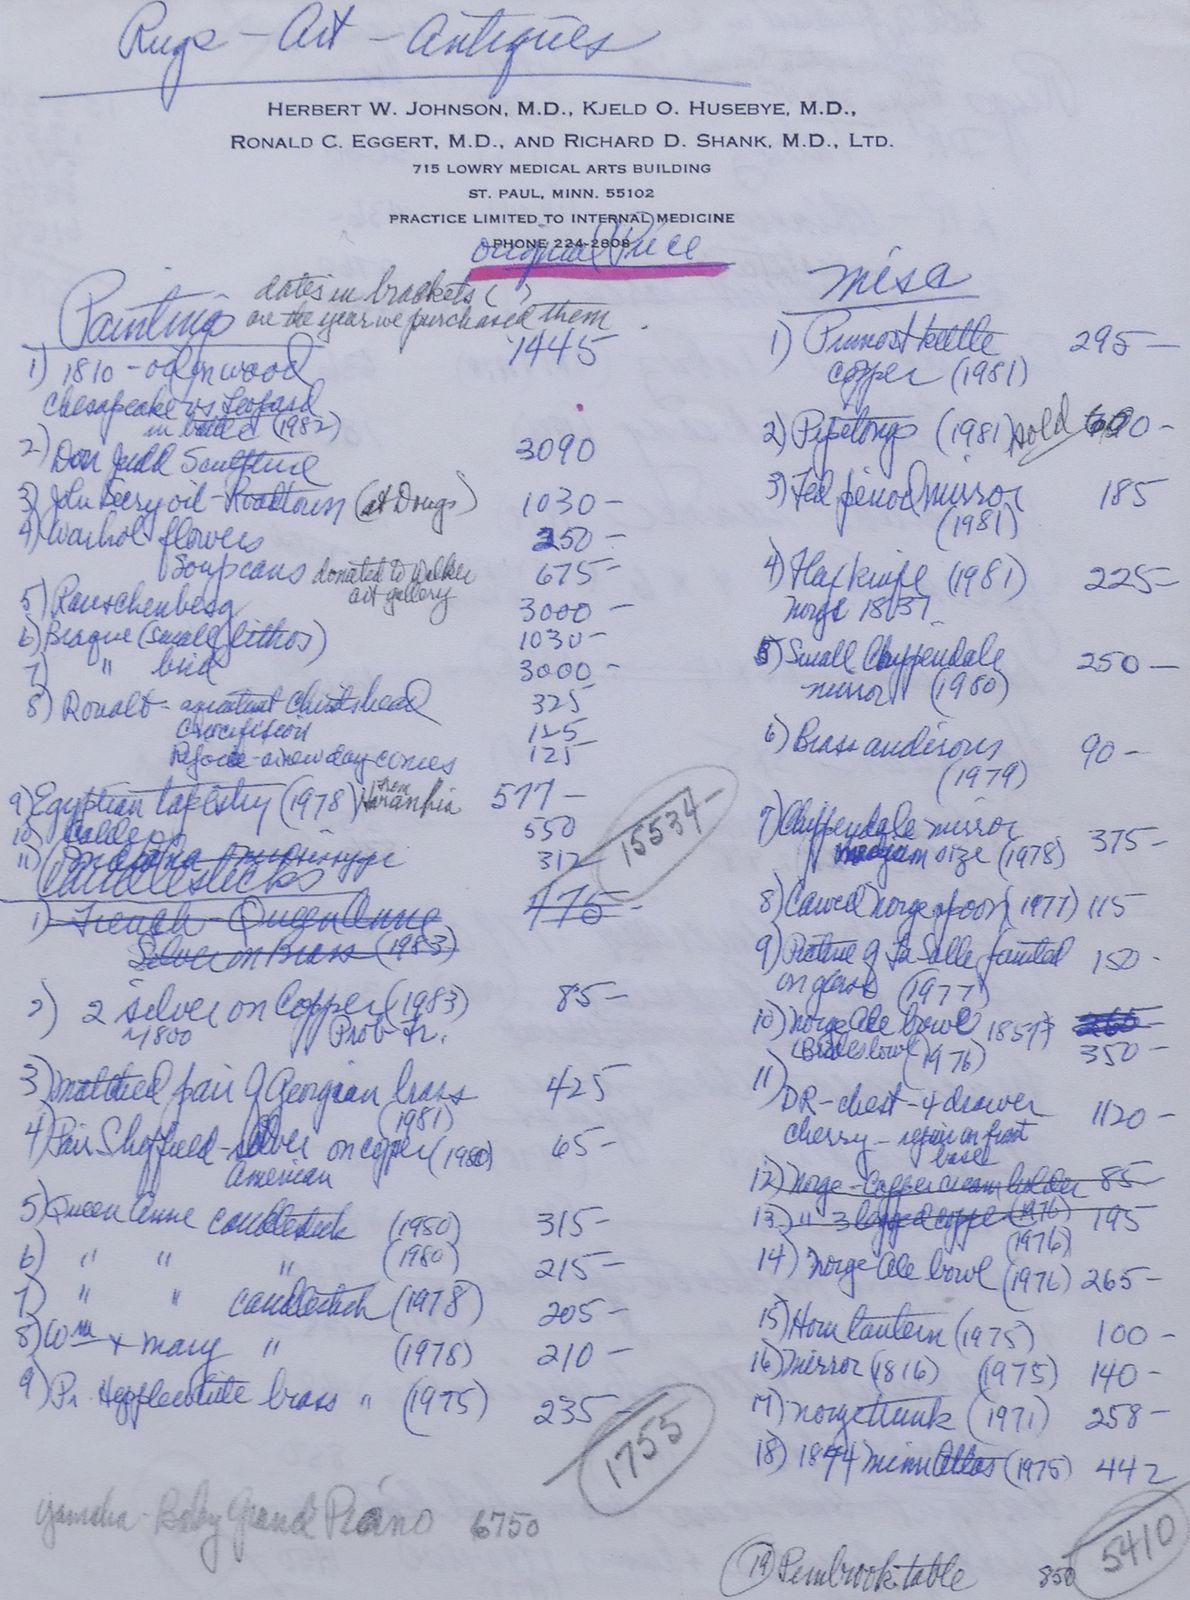 Rugs - Art - Antiques
HERBERT W. JOHNSON, M.D., KJELD O. HUSEBYE, M.D.,
RONALD C. EGGERT, M.D., AND RICHARD D. SHANK, M.D., LTD.
715 LOWRY MEDICAL ARTS BUILDING
ST. PAUL, MINN. 55102
PRACTICE LIMITED TO INTERNAL MEDICINE
PHONE 224-2808
Original Price
dates in brackets ( )
are the year we purchased them
Paintings
1) 1810 - oil on wood 1445
Chesapeake vs Leopard
in battle (1982)
2) Don Judd Sculpture 3090
3) John Beery oil - (at Dougs) 1030 -
4) Warhol flowers 250 -
Soup cans donated to Walker art gallery 675 -
5) Rauschenberg 3000 -
6) Braque (small lithos) 1030 -
7) " bird 3000 -
8) Rouault - Christ head 325
Crucifixion 125
- a new day comes 125
9) Egyptian tapestry (1978) from 577 -
10) Calder 550
11) 312
15534
Candlesticks
1) French - Queen Anne 475 -
Silver on Brass (1983)
2) 2 silver on Copper (1983) 85 -
~1800 Prob Fr.
3) matched pair of Georgian brass 425
(1981)
4) Pair Sheffield - silver on copper (1980) 65 -
American
5) Queen Anne candlestick (1980) 315 -
6) " " " (1980) 215 -
7) " " candlestick (1978) 205 -
8) Wm + Mary " (1978) 210 -
9) Pr. Hepplewhite brass " (1975) 235 -
1755
Yamaha - Baby Grand Piano 6750
Misa
1) Primost kettle 295 -
copper (1981)
2) Pipetongs (1981) sold 690 -
3) Fed period mirror 185
(1981)
4) Flax knife (1981) 225 -
Norge 1837
5) Small Chippendale 250 -
mirror (1980)
6) Brass andirons 90 -
(1979)
7) Chippendale mirror 375 -
size (1978)
8) Carved Norge spoon (1977) 115
9) Picture of La Salle painted 150 -
on glass (1977)
10) Norge Ale bowl 1857 260
(Brides bowl) (1976) 350 -
11) DR - chest - 4 drawer 1120 -
cherry - repair on front
base
12) Norge - Copper cream holder 85 -
13) " 3 legged copper (1976) 195
(1976)
14) Norge Ale bowl (1976) 265 -
15) Horn lantern (1975) 100 -
16) Mirror (1816) (1975) 140 -
17) Norge trunk (1971) 258 -
18) 1874 Minn Atlas (1975) 442
5410
19) Pembrook table 850